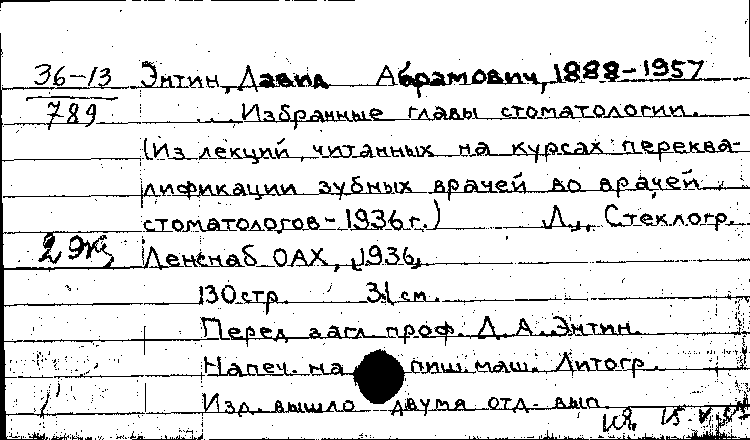 36-13 Энтин, Давид Абрамович, 1888-1957
789 ... Избранные главы стоматологии.
(Из лекций, читанных на курсах переква-
лификации зубных врачей во врачей
стоматологов - 1936 г.) Л., Стеклогр.
2 экз Ленснаб ОАХ, 1936,
130 стр. 31 см.
Перед загл. проф. Д. А. Энтин.
Напеч. на пиш. маш. Литогр.
Изд. вышло двумя отд. вып.